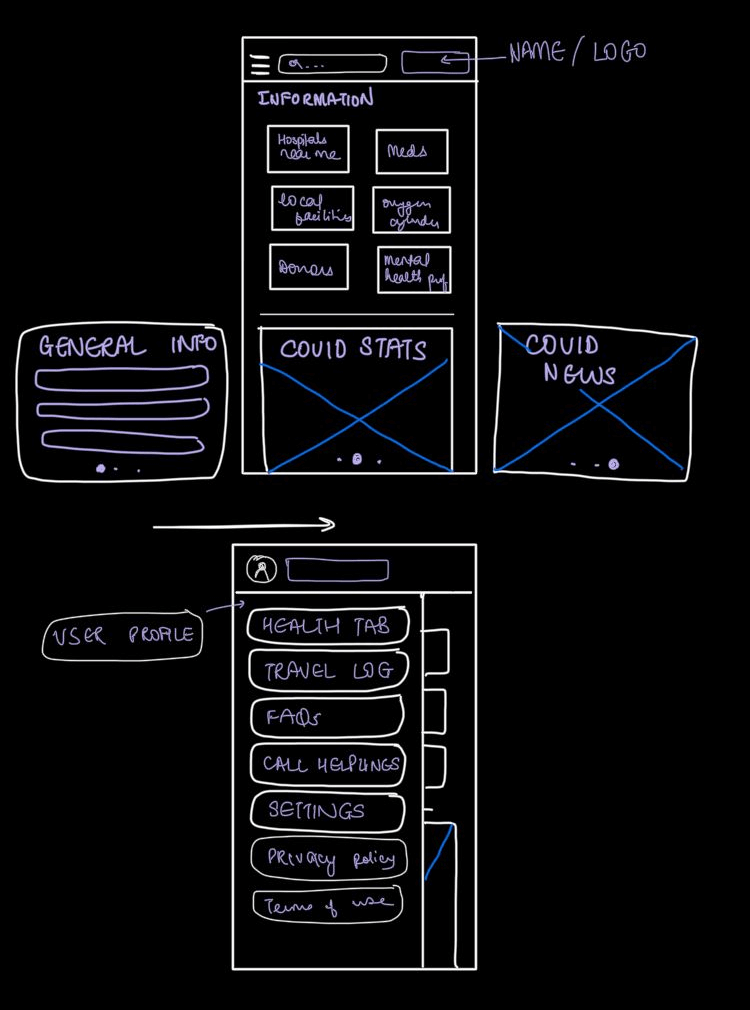 a...
NAME / LOGO
INFORMATION
Hospitals
near me
Meds
local
facilities
oxygen
cylinder
Donors
Mental
health prof
GENERAL INFO
COVID STATS
COVID
NEWS
USER PROFILE
HEALTH TAB
TRAVEL LOG
FAQs
CALL HELPLINGS
SETTINGS
PRIVACY policy
Terms of use